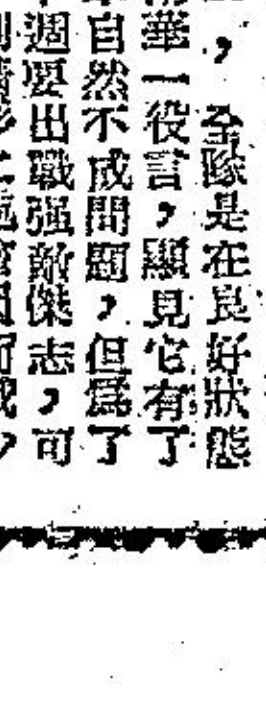 ，全隊是在良好狀態
華一役言，顯見它有了
自然不成問題，但爲了
週要出戰强敵傑志，可